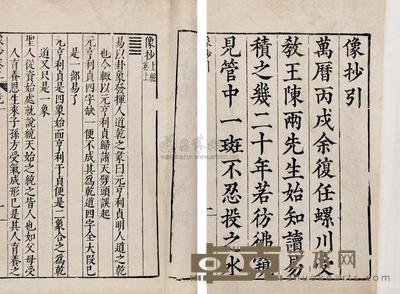 像抄引
萬曆丙戌余復任螺川受
教王陳兩先生始知讀易
積之幾二十年若彷彿窺
見管中一斑不忍投之水
像抄 上經卷上
易以卦象發揮人道乾之象曰元亨利貞明人道之乾
也今輒以元亨利貞歸諸天劈頭誤起
元亨利貞四字缺一便不成其爲乾道四字全大段已
是一部易了
元亨利貞是四象始而亨利于貞便是二象合之爲乾
道又只是一象
聖人從資始處就說統天始之統之皆人也如父母受
人育養恩生來子孫方受氣成形已是其人育養之